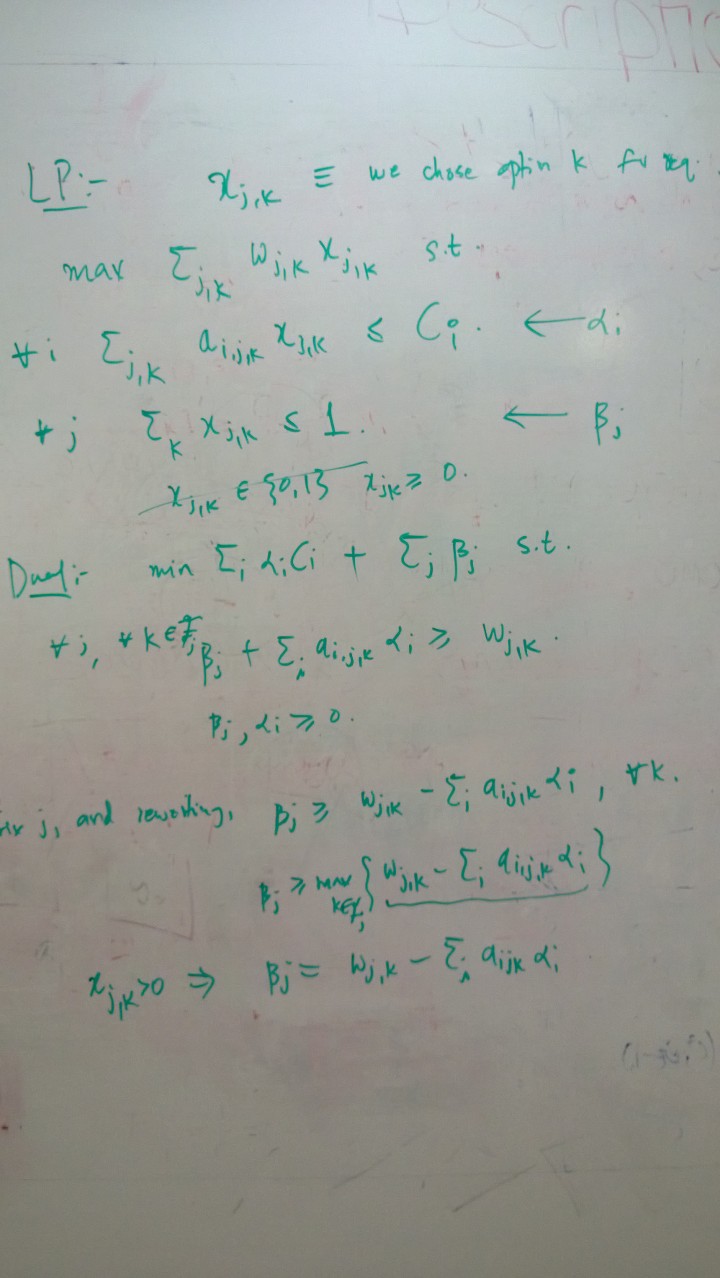 scription
LP:- x_{j,k} ≡ we chose option k for req.
max Σ_{j,k} w_{j,k} x_{j,k} s.t.
∀i Σ_{j,k} a_{i,j,k} x_{j,k} ≤ C_i. ← α_i
∀j Σ_k x_{j,k} ≤ 1. ← β_j
~~x_{j,k} ∈ {0,1}~~ x_{jk} ≥ 0.
Dual:- min Σ_i α_i C_i + Σ_j β_j s.t.
∀j, ∀k∈F_j β_j + Σ_i a_{i,j,k} α_i ≥ w_{j,k}.
β_j, α_i ≥ 0.
j, and rewriting, β_j ≥ w_{j,k} - Σ_i a_{i,j,k} α_i, ∀k.
β_j ≥ max_{k∈F_j} { w_{j,k} - Σ_i a_{i,j,k} α_i }
x_{j,k}>0 ⇒ β_j = w_{j,k} - Σ_i a_{ijk} α_i